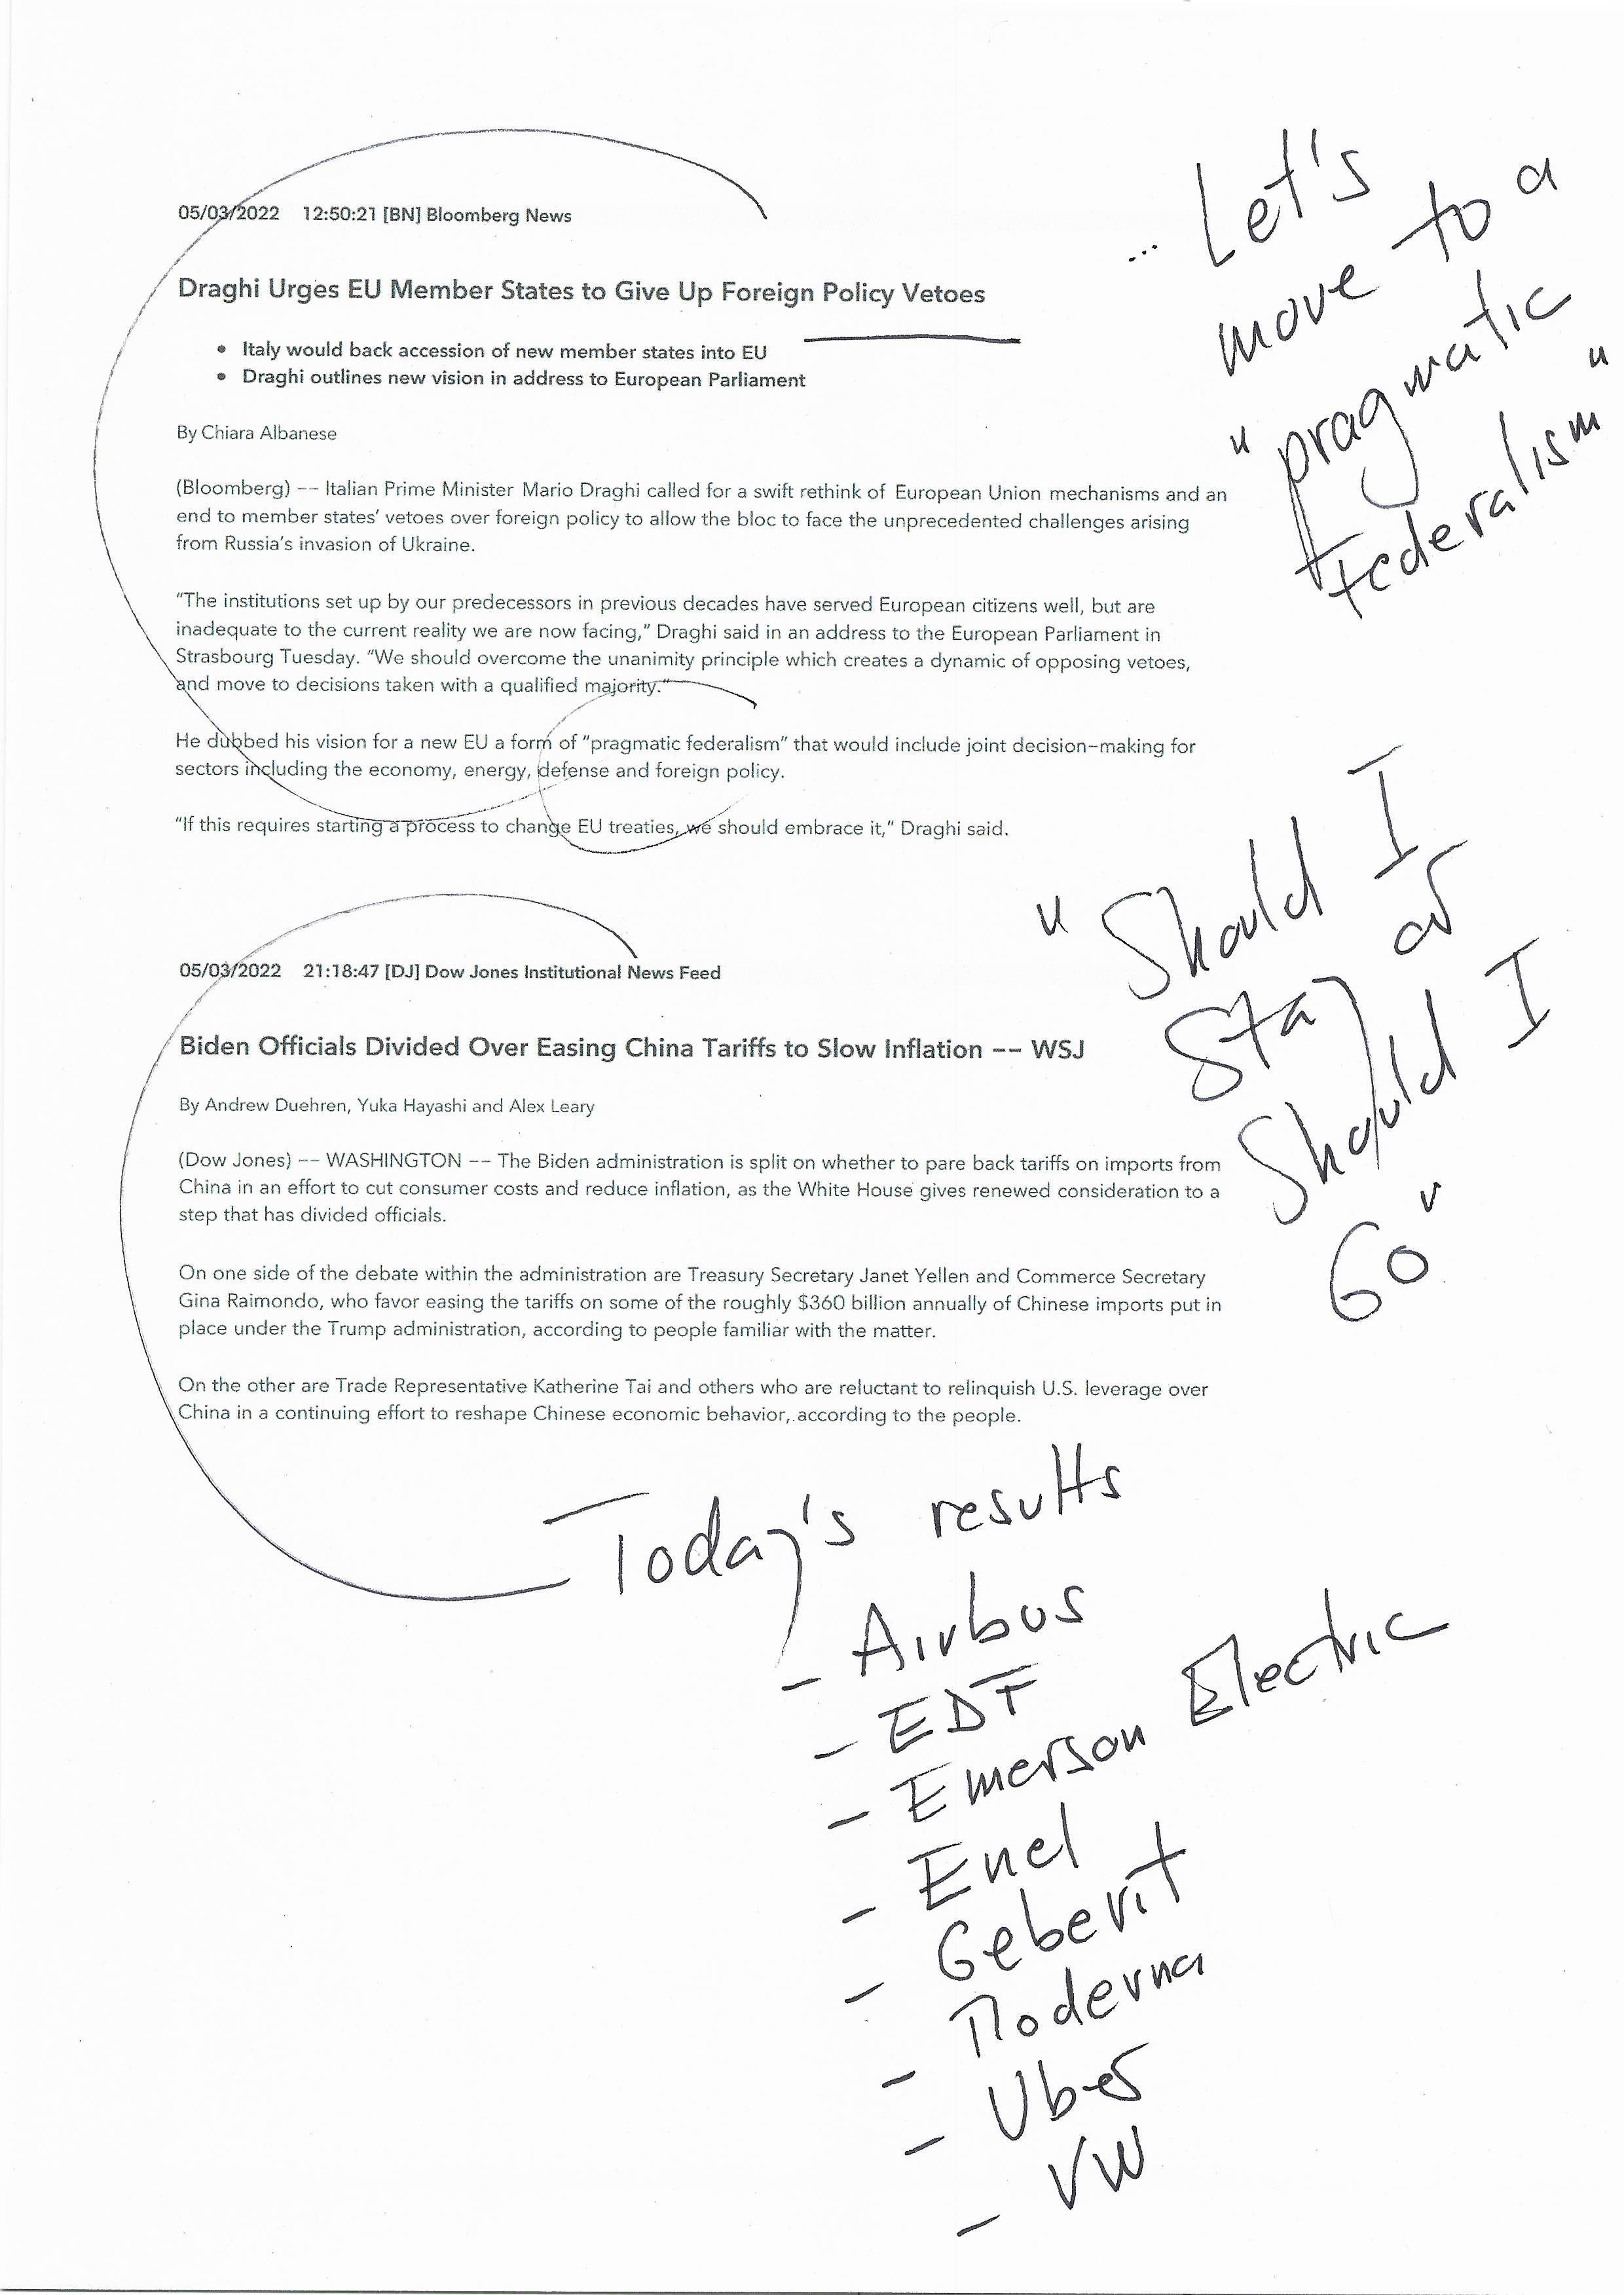 ... Let's
move to a
"pragmatic
Federalism"
05/03/2022 12:50:21 [BN] Bloomberg News
Draghi Urges EU Member States to Give Up Foreign Policy Vetoes
• Italy would back accession of new member states into EU
• Draghi outlines new vision in address to European Parliament
By Chiara Albanese
(Bloomberg) -- Italian Prime Minister Mario Draghi called for a swift rethink of European Union mechanisms and an
end to member states' vetoes over foreign policy to allow the bloc to face the unprecedented challenges arising
from Russia's invasion of Ukraine.
"The institutions set up by our predecessors in previous decades have served European citizens well, but are
inadequate to the current reality we are now facing," Draghi said in an address to the European Parliament in
Strasbourg Tuesday. "We should overcome the unanimity principle which creates a dynamic of opposing vetoes,
and move to decisions taken with a qualified majority."
He dubbed his vision for a new EU a form of "pragmatic federalism" that would include joint decision-making for
sectors including the economy, energy, defense and foreign policy.
"If this requires starting a process to change EU treaties, we should embrace it," Draghi said.
"Should I
Stay or
Should I
Go"
05/03/2022 21:18:47 [DJ] Dow Jones Institutional News Feed
Biden Officials Divided Over Easing China Tariffs to Slow Inflation -- WSJ
By Andrew Duehren, Yuka Hayashi and Alex Leary
(Dow Jones) -- WASHINGTON -- The Biden administration is split on whether to pare back tariffs on imports from
China in an effort to cut consumer costs and reduce inflation, as the White House gives renewed consideration to a
step that has divided officials.
On one side of the debate within the administration are Treasury Secretary Janet Yellen and Commerce Secretary
Gina Raimondo, who favor easing the tariffs on some of the roughly $360 billion annually of Chinese imports put in
place under the Trump administration, according to people familiar with the matter.
On the other are Trade Representative Katherine Tai and others who are reluctant to relinquish U.S. leverage over
China in a continuing effort to reshape Chinese economic behavior, according to the people.
Today's results
- Airbus
- EDF
- Emerson Electric
- Enel
- Geberit
- Moderna
- Uber
- VW